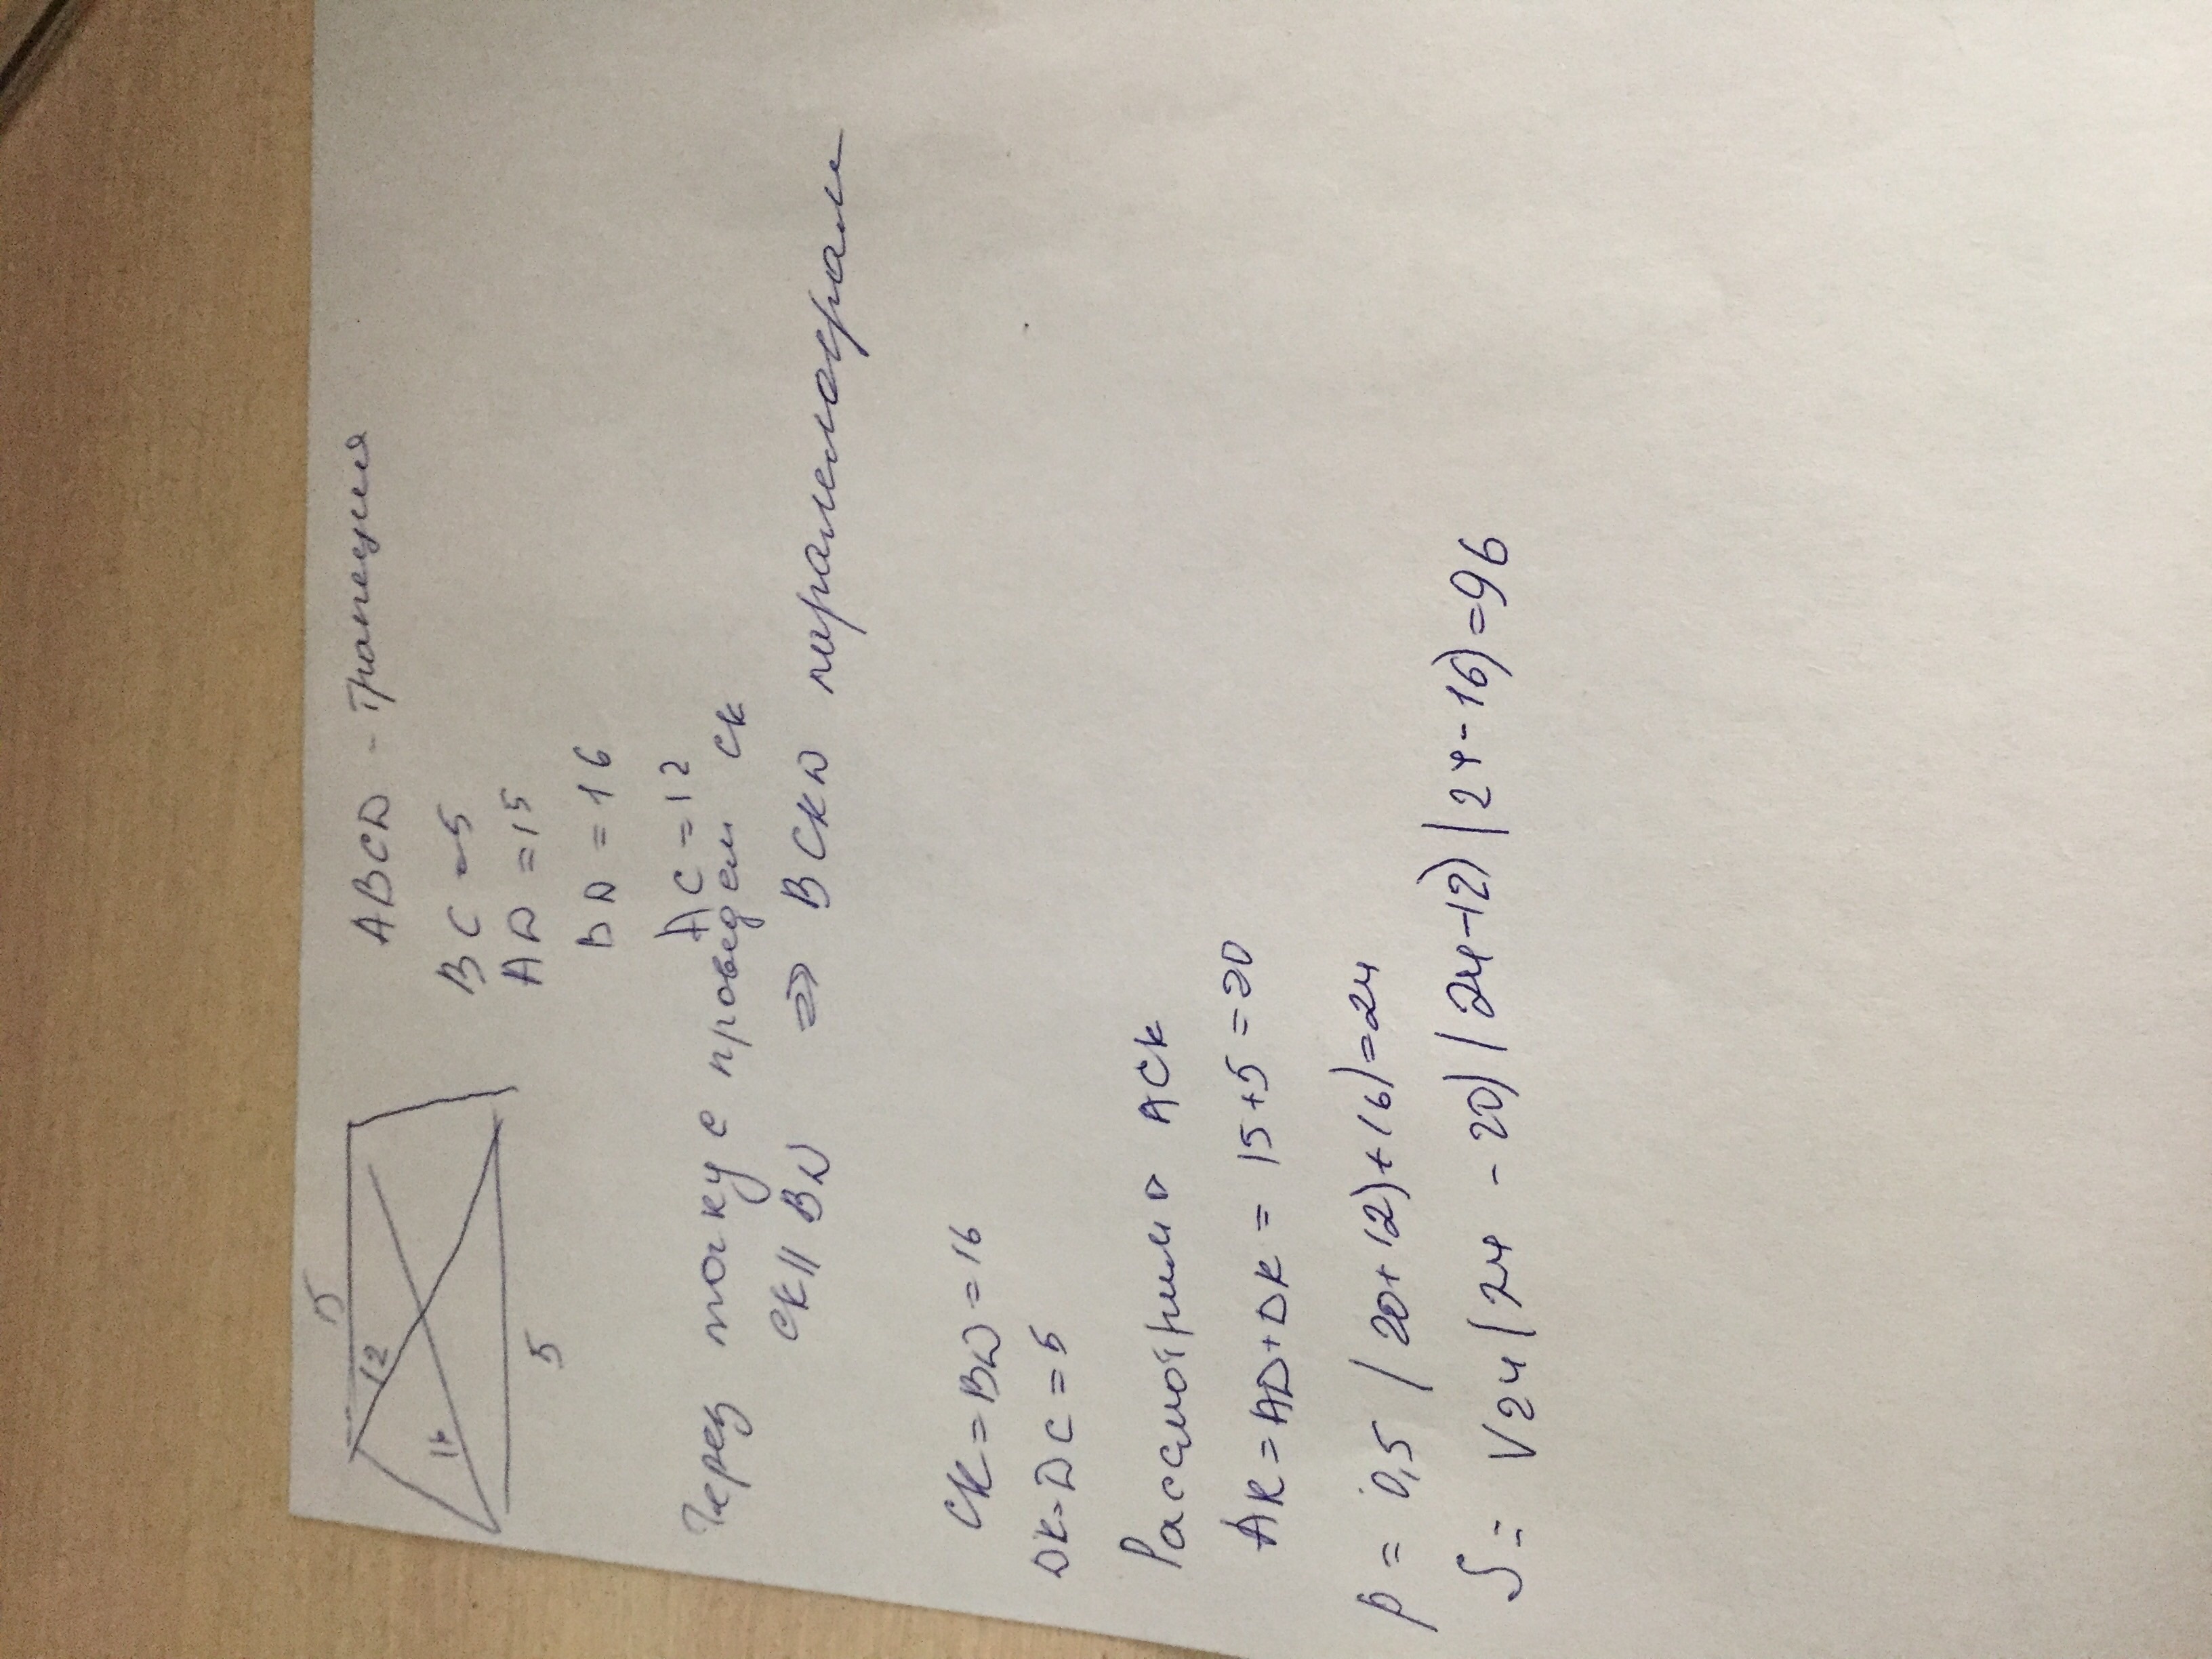 15
12
16
5
ABCD - трапеция
BC = 5
AD = 15
BD = 16
AC = 12
Через точку C проведем CK
CK || BD ⇒ BCKD параллелограм
CK = BD = 16
DK = DC = 5
Рассмотрим Δ ACK
AK = AD + DK = 15 + 5 = 20
p = 0,5 ( 20 + 12) + 16) = 24
S = √24 ( 24 - 20) ( 24 - 12) ( 24 - 16) = 96